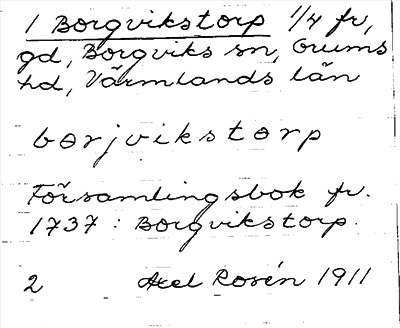 1 Borgvikstorp 1/4 fr,
gd, Borgviks sn, Grums
hd, Värmlands län
borjvikstorp
Församlingsbok fr.
1737: Borgvikstorp.
2 Axel Rosén 1911